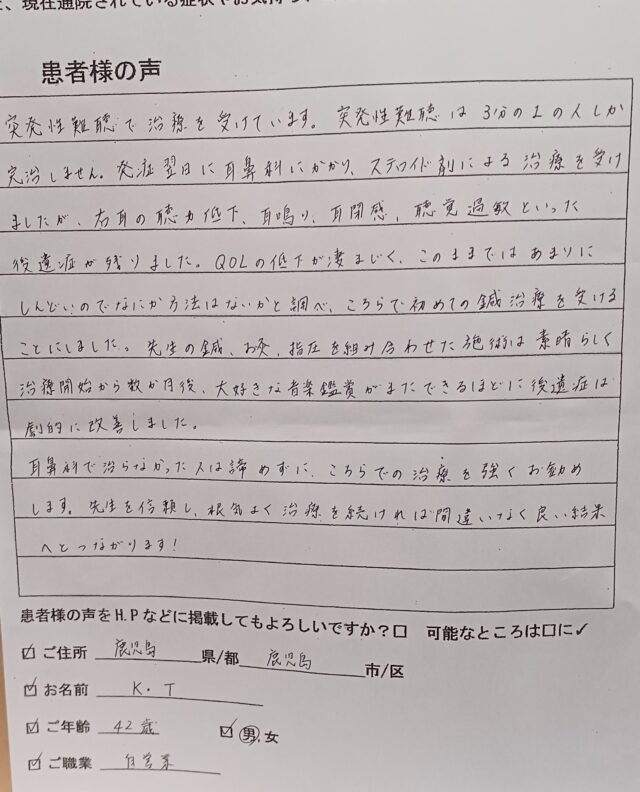 、現在通院されている症状やお気持ち、
患者様の声
突発性難聴で治療を受けています。突発性難聴は3分の1の人しか
完治しません。発症翌日に耳鼻科にかかり、ステロイド剤による治療を受け
ましたが、右耳の聴力低下、耳鳴り、耳閉感、聴覚過敏といった
後遺症が残りました。QOLの低下が凄まじく、このままではあまりに
しんどいのでなにか方法はないかと調べ、こちらで初めての鍼治療を受ける
ことにしました。先生の鍼、お灸、指圧を組み合わせた施術は素晴らしく
治療開始から数か月後、大好きな音楽鑑賞がまたできるほどに後遺症は
劇的に改善しました。
耳鼻科で治らなかった人は諦めずに、こちらでの治療を強くお勧め
します。先生を信頼し、根気よく治療を続ければ間違いなく良い結果
へとつながります!
患者様の声をH.Pなどに掲載してもよろしいですか?□ 可能なところは□に✓
☑ご住所 鹿児島 県/都 鹿児島 市/区
☑お名前 K・T
☑ご年齢 42歳 ☑男.女
☑ご職業 自営業